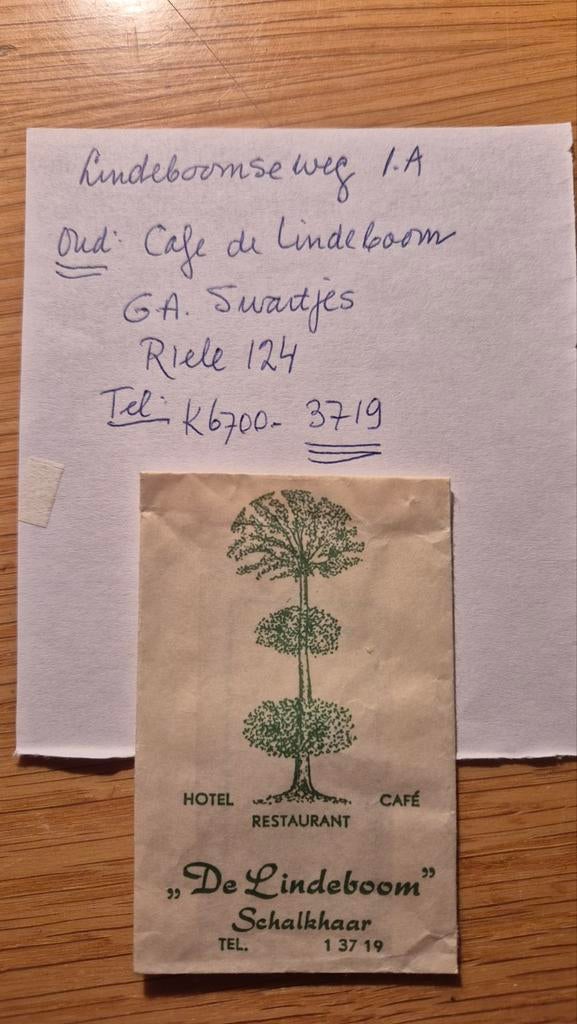 Lindeboomseweg 1.A
Oud: Cafe de Lindeboom
G.A. Swartjes
Riele 124
Tel: K6700- 3719
HOTEL CAFÉ
RESTAURANT
„De Lindeboom”
Schalkhaar
TEL. 1 37 19